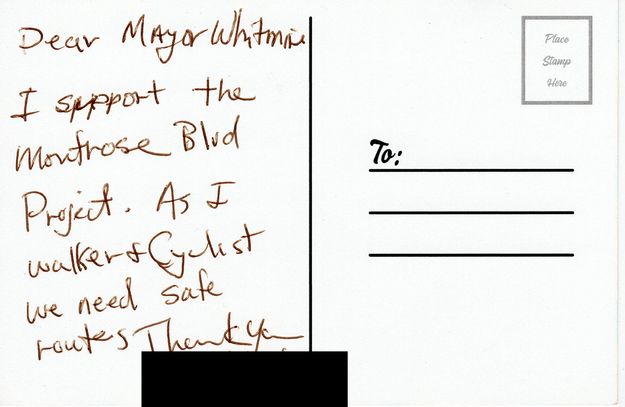 Dear Mayor Whitmire
I support the
Montrose Blvd
Project. As I
walker & Cyclist
we need safe
routes Thank You
Place
Stamp
Here
To: